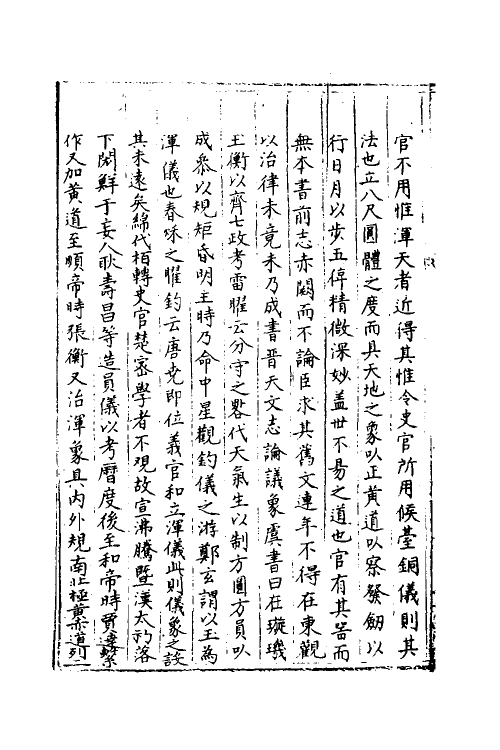 官不用惟渾天者近得其惟今史官所用候䑓銅儀則其
法也立八尺圓體之度而具天地之象以正黄道以察發劒以
行日月以步五停精微深妙盖世不易之道也官有其器而
無本書前志亦闕而不論臣求其舊文連年不得在東觀
以治律未竟未乃成書晋天文志論議象虞書曰在璇璣
玉衡以齊七政考雷耀云分守之畧代天氣生以制方圓方員以
成叅以規矩昏明主時乃命中星觀鈞儀之游鄭玄謂以玉為
渾儀也春咊之耀鈞云唐尭即位義官和立渾儀此則儀象之設
其未遠矣綿代栢轉史官楚宻學者不覩故宣沸騰曁漢太初落
下閎鮮于妄人耿壽昌等造員儀以考曆度後至和帝時賈逵繫
作又加黄道至順帝時張衡又治渾象具内外規南北極黄道列